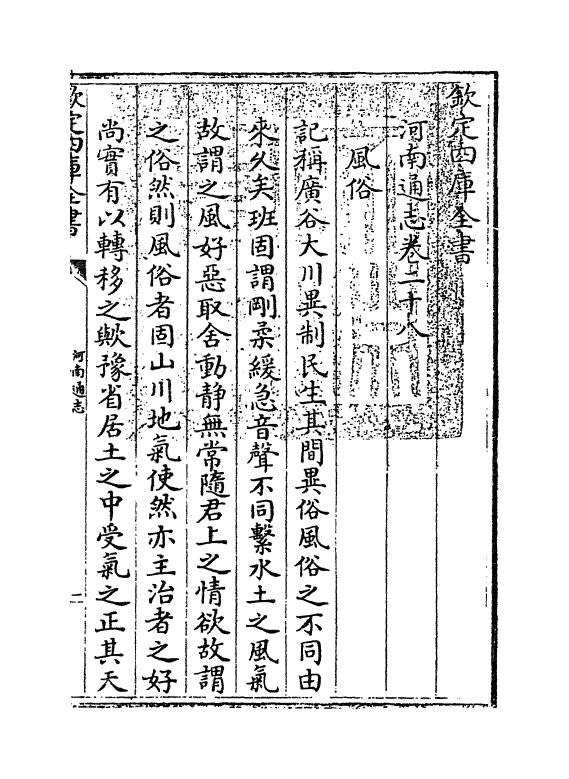 欽定四庫全書
河南通志卷二十八
風俗
記稱廣谷大川異制民生其間異俗風俗之不同由
來久矣班固謂剛柔緩急音聲不同繫水土之風氣
故謂之風好惡取舍動靜無常隨君上之情欲故謂
之俗然則風俗者固山川地氣使然亦主治者之好
尚實有以轉移之歟豫省居土之中受氣之正其天
欽定四庫全書
河南通志